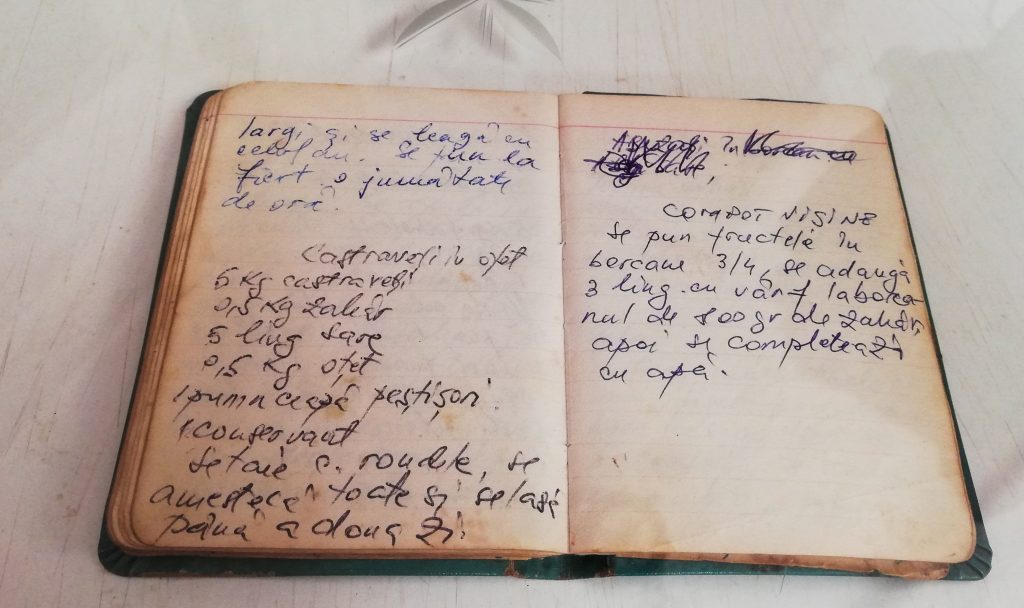 largi, și se leagă cu
celofan. Se pun la
fiert o jumătate
de oră.
Castraveți în oțet
5 Kg castraveți
0,5 Kg zahăr
5 ling sare
0,5 Kg oțet
1 pumn ceapă peștișori
1 conservant
Se taie c. rondele, se
amestecă toate și se lasă
până a doua zi.
în
COMPOT VIȘINE
Se pun fructele în
borcane 3/4, se adaugă
3 ling. cu vârf la borca
nul de 800 gr de zahăr,
apoi se completează
cu apă.